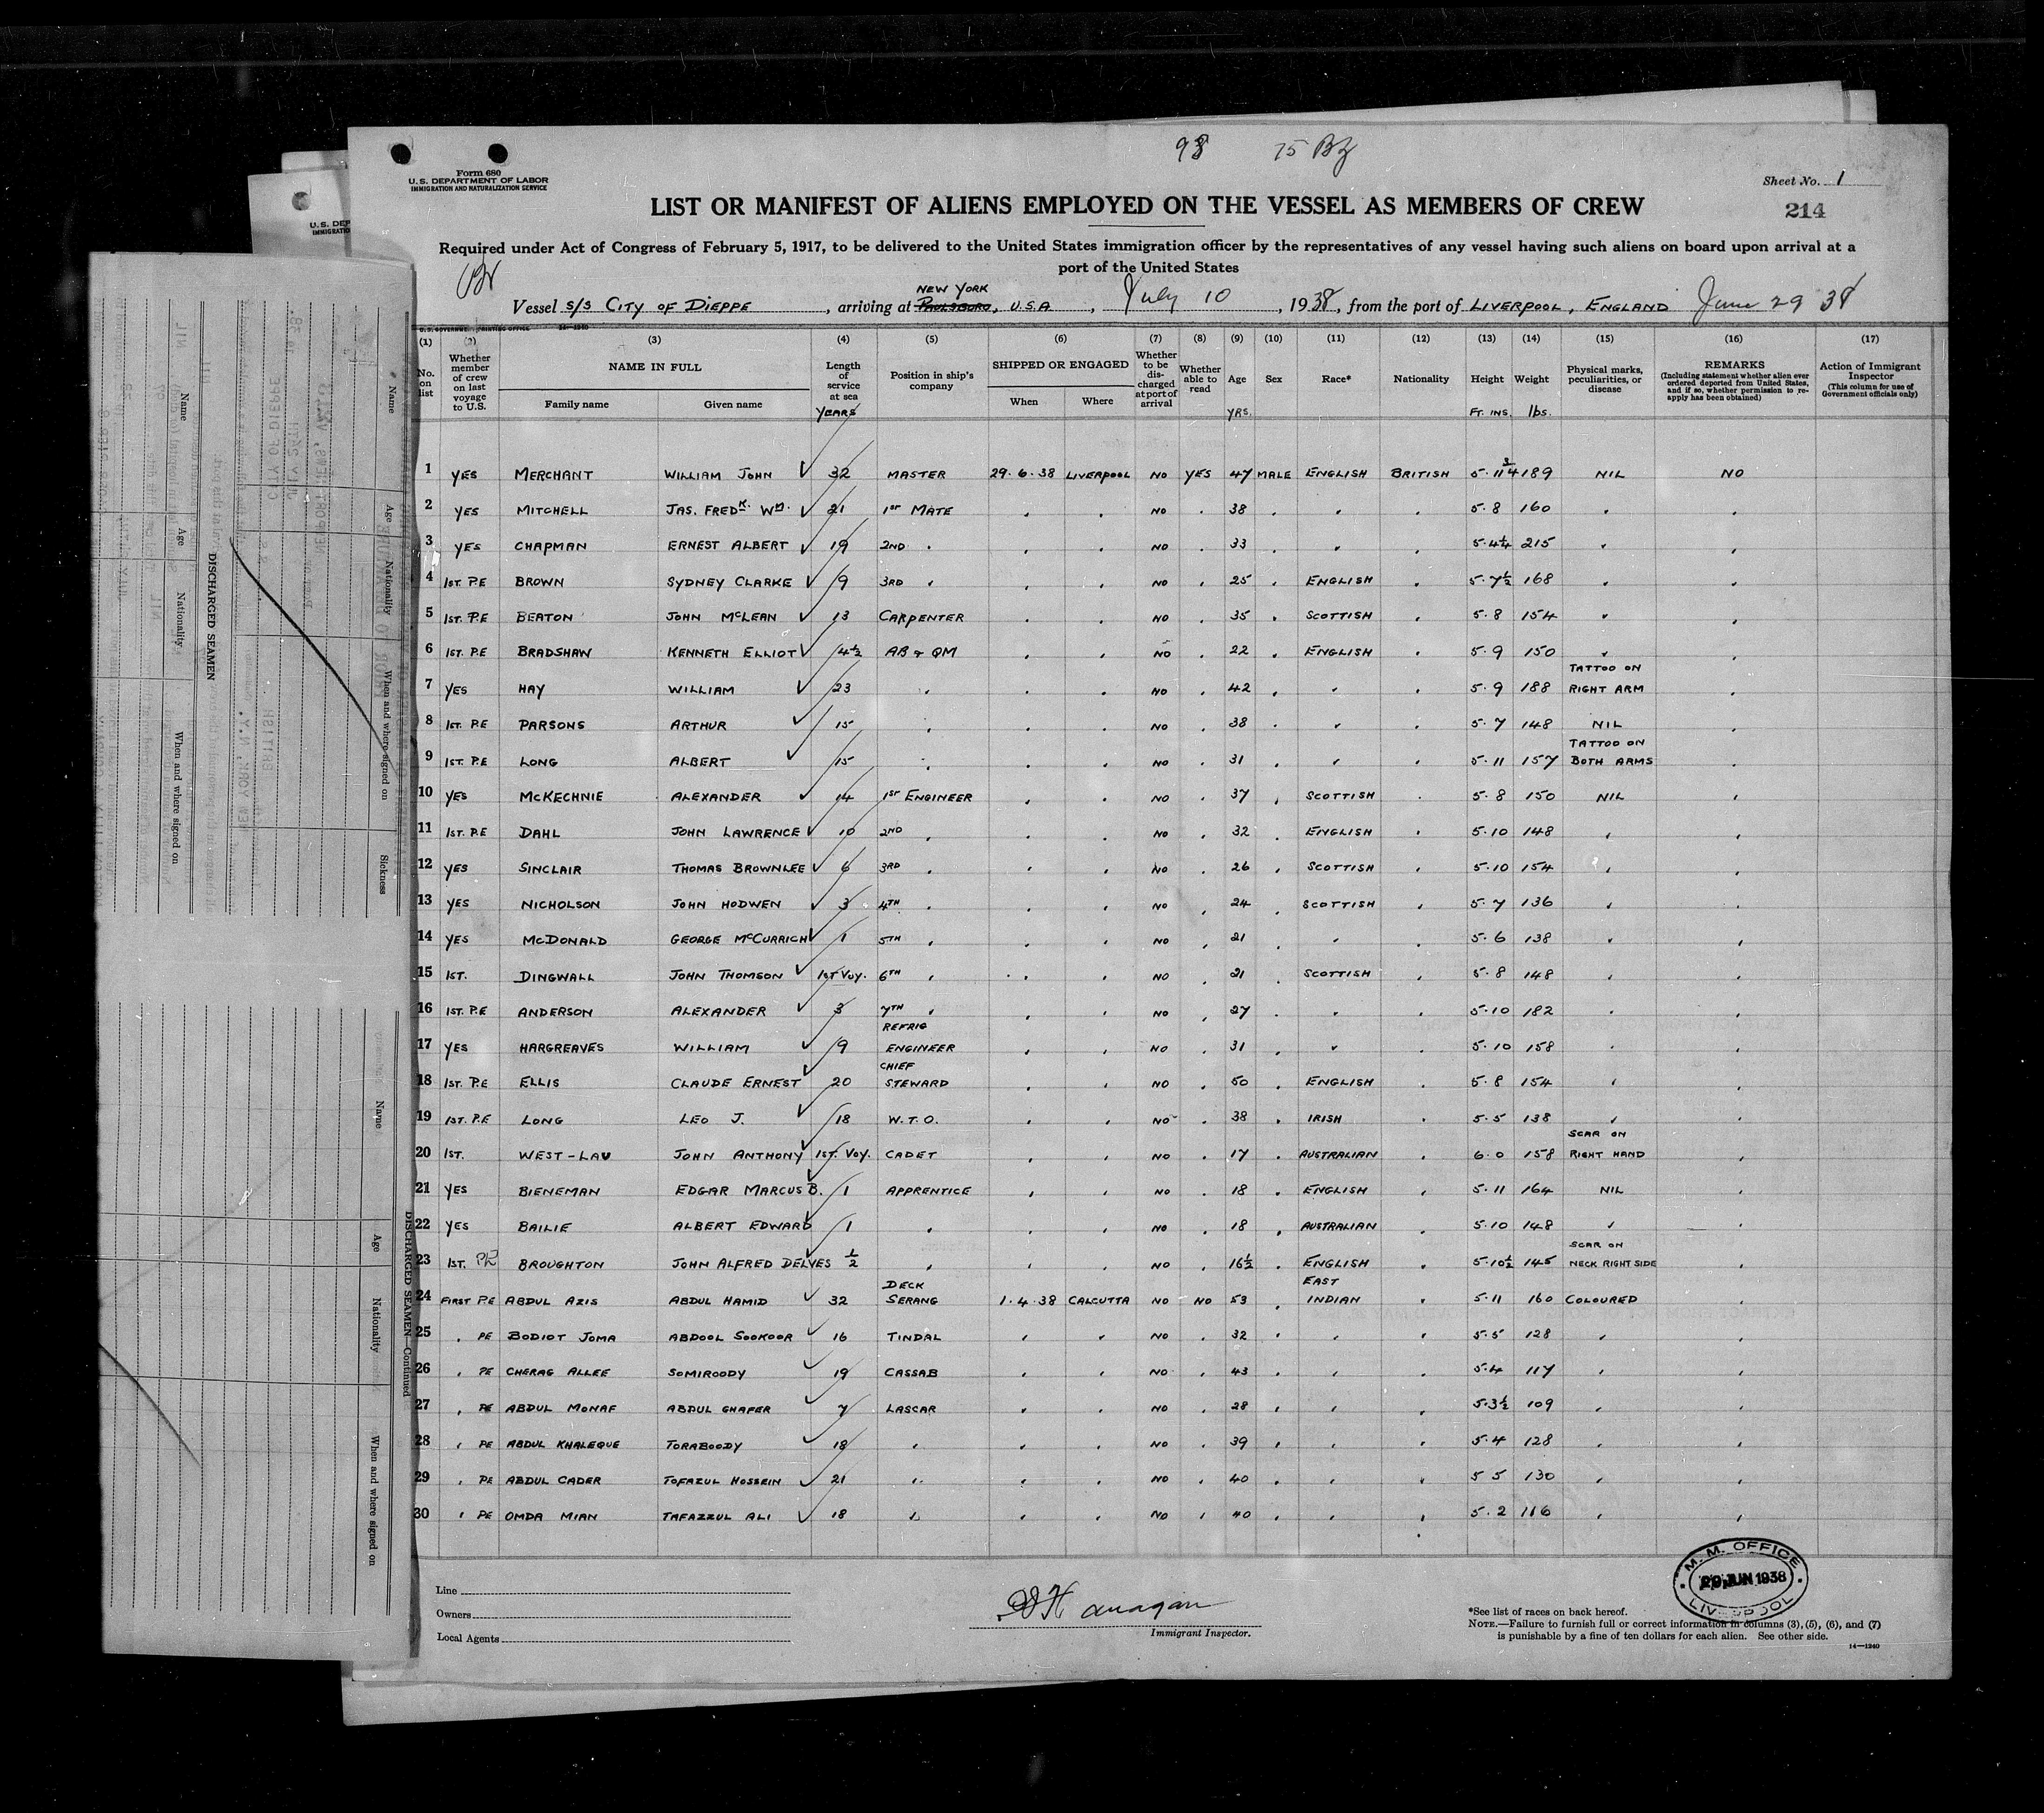 98 75
Form 680
U. S. DEPARTMENT OF LABOR
IMMIGRATION AND NATURALIZATION SERVICE
Sheet No. 1
LIST OR MANIFEST OF ALIENS EMPLOYED ON THE VESSEL AS MEMBERS OF CREW
214
Required under Act of Congress of February 5, 1917, to be delivered to the United States immigration officer by the representatives of any vessel having such aliens on board upon arrival at a
port of the United States
NEW YORK
Vessel S/S CITY OF DIEPPE, arriving at PAULSBORO, U.S.A, July 10, 1938, from the port of LIVERPOOL, ENGLAND June 29 38
(1) (2) (3) (4) (5) (6) (7) (8) (9) (10) (11) (12) (13) (14) (15) (16) (17)
No. on list
Whether member of crew on last voyage to U.S.
NAME IN FULL
Family name Given name
Length of service at sea
YEARS
Position in ship's company
SHIPPED OR ENGAGED
When Where
Whether to be discharged at port of arrival
Whether able to read
Age
YRS.
Sex
Race*
Nationality
Height
FT. INS.
Weight
lbs.
Physical marks, peculiarities, or disease
REMARKS
(Including statement whether alien ever ordered deported from United States, and if so, whether permission to reapply has been obtained)
Action of Immigrant Inspector
(This column for use of Government officials only)
1 YES MERCHANT WILLIAM JOHN ✓ 32 MASTER 29.6.38 LIVERPOOL NO YES 47 MALE ENGLISH BRITISH 5.11 3/4 189 NIL NO
2 YES MITCHELL JAS. FREDK. WM. ✓ 21 1ST MATE NO 38 5.8 160
3 YES CHAPMAN ERNEST ALBERT ✓ 19 2ND NO 33 5.4¼ 215
4 1ST. P.E BROWN SYDNEY CLARKE ✓ 9 3RD NO 25 ENGLISH 5.7½ 168
5 1ST. P.E BEATON JOHN McLEAN ✓ 13 CARPENTER NO 35 SCOTTISH 5.8 154
6 1ST. P.E BRADSHAW KENNETH ELLIOT ✓ 4½ AB & QM NO 22 ENGLISH 5.9 150
7 YES HAY WILLIAM ✓ 23 NO 42 5.9 188 TATTOO ON RIGHT ARM
8 1ST. P.E PARSONS ARTHUR ✓ 15 NO 38 5.7 148 NIL
9 1ST. P.E LONG ALBERT ✓ 15 NO 31 5.11 157 TATTOO ON BOTH ARMS
10 YES McKECHNIE ALEXANDER ✓ 14 1ST ENGINEER NO 37 SCOTTISH 5.8 150 NIL
11 1ST. P.E DAHL JOHN LAWRENCE ✓ 10 2ND NO 32 ENGLISH 5.10 148
12 YES SINCLAIR THOMAS BROWNLEE ✓ 6 3RD NO 26 SCOTTISH 5.10 154
13 YES NICHOLSON JOHN HODWEN ✓ 3 4TH NO 24 SCOTTISH 5.7 136
14 YES McDONALD GEORGE McCURRICH ✓ 1 5TH NO 21 5.6 138
15 1ST. DINGWALL JOHN THOMSON ✓ 1ST VOY. 6TH NO 21 SCOTTISH 5.8 148
16 1ST. P.E ANDERSON ALEXANDER ✓ 3 7TH NO 27 5.10 182
17 YES HARGREAVES WILLIAM ✓ 9 REFRIG ENGINEER NO 31 5.10 158
18 1ST. P.E ELLIS CLAUDE ERNEST ✓ 20 CHIEF STEWARD NO 50 ENGLISH 5.8 154
19 1ST. P.E LONG LEO J. ✓ 18 W.T.O. NO 38 IRISH 5.5 138
20 1ST. WEST-LAU JOHN ANTHONY ✓ 1ST. VOY. CADET NO 17 AUSTRALIAN 6.0 158 SCAR ON RIGHT HAND
21 YES BIENEMAN EDGAR MARCUS B. ✓ 1 APPRENTICE NO 18 ENGLISH 5.11 164 NIL
22 YES BAILIE ALBERT EDWARD ✓ 1 NO 18 AUSTRALIAN 5.10 148
23 1ST. PE BROUGHTON JOHN ALFRED DELVES ✓ ½ NO 16½ ENGLISH 5.10½ 145 SCAR ON NECK RIGHT SIDE
24 FIRST PE ABDUL AZIS ABDUL HAMID ✓ 32 DECK SERANG 1.4.38 CALCUTTA NO NO 53 EAST INDIAN 5.11 160 COLOURED
25 PE BODIOT JOMA ABDOOL SOOKOOR ✓ 16 TINDAL NO 32 5.5 128
26 PE CHERAG ALLEE SOMIROODY ✓ 19 CASSAB NO 43 5.4 117
27 PE ABDUL MONAF ABDUL GHAFER ✓ 7 LASCAR NO 28 5.3½ 109
28 PE ABDUL KHALEQUE TORABOODY ✓ 18 NO 39 5.4 128
29 PE ABDUL CADER TOFAZUL HOSSEIN ✓ 21 NO 40 5 5 130
30 PE OMDA MIAN TAFAZZUL ALI ✓ 18 NO 40 5.2 116
Line
Owners
Local Agents
Immigrant Inspector.
M. M. OFFICE
29 JUN 1938
LIVERPOOL
*See list of races on back hereof.
NOTE.—Failure to furnish full or correct information in columns (3), (5), (6), and (7)
is punishable by a fine of ten dollars for each alien. See other side.
14—1240
DISCHARGED SEAMEN
Name Age Nationality When and where signed on
Name Age Nationality When and where signed on Sickness
DISCHARGED SEAMEN—Continued
Name Age Nationality When and where signed on